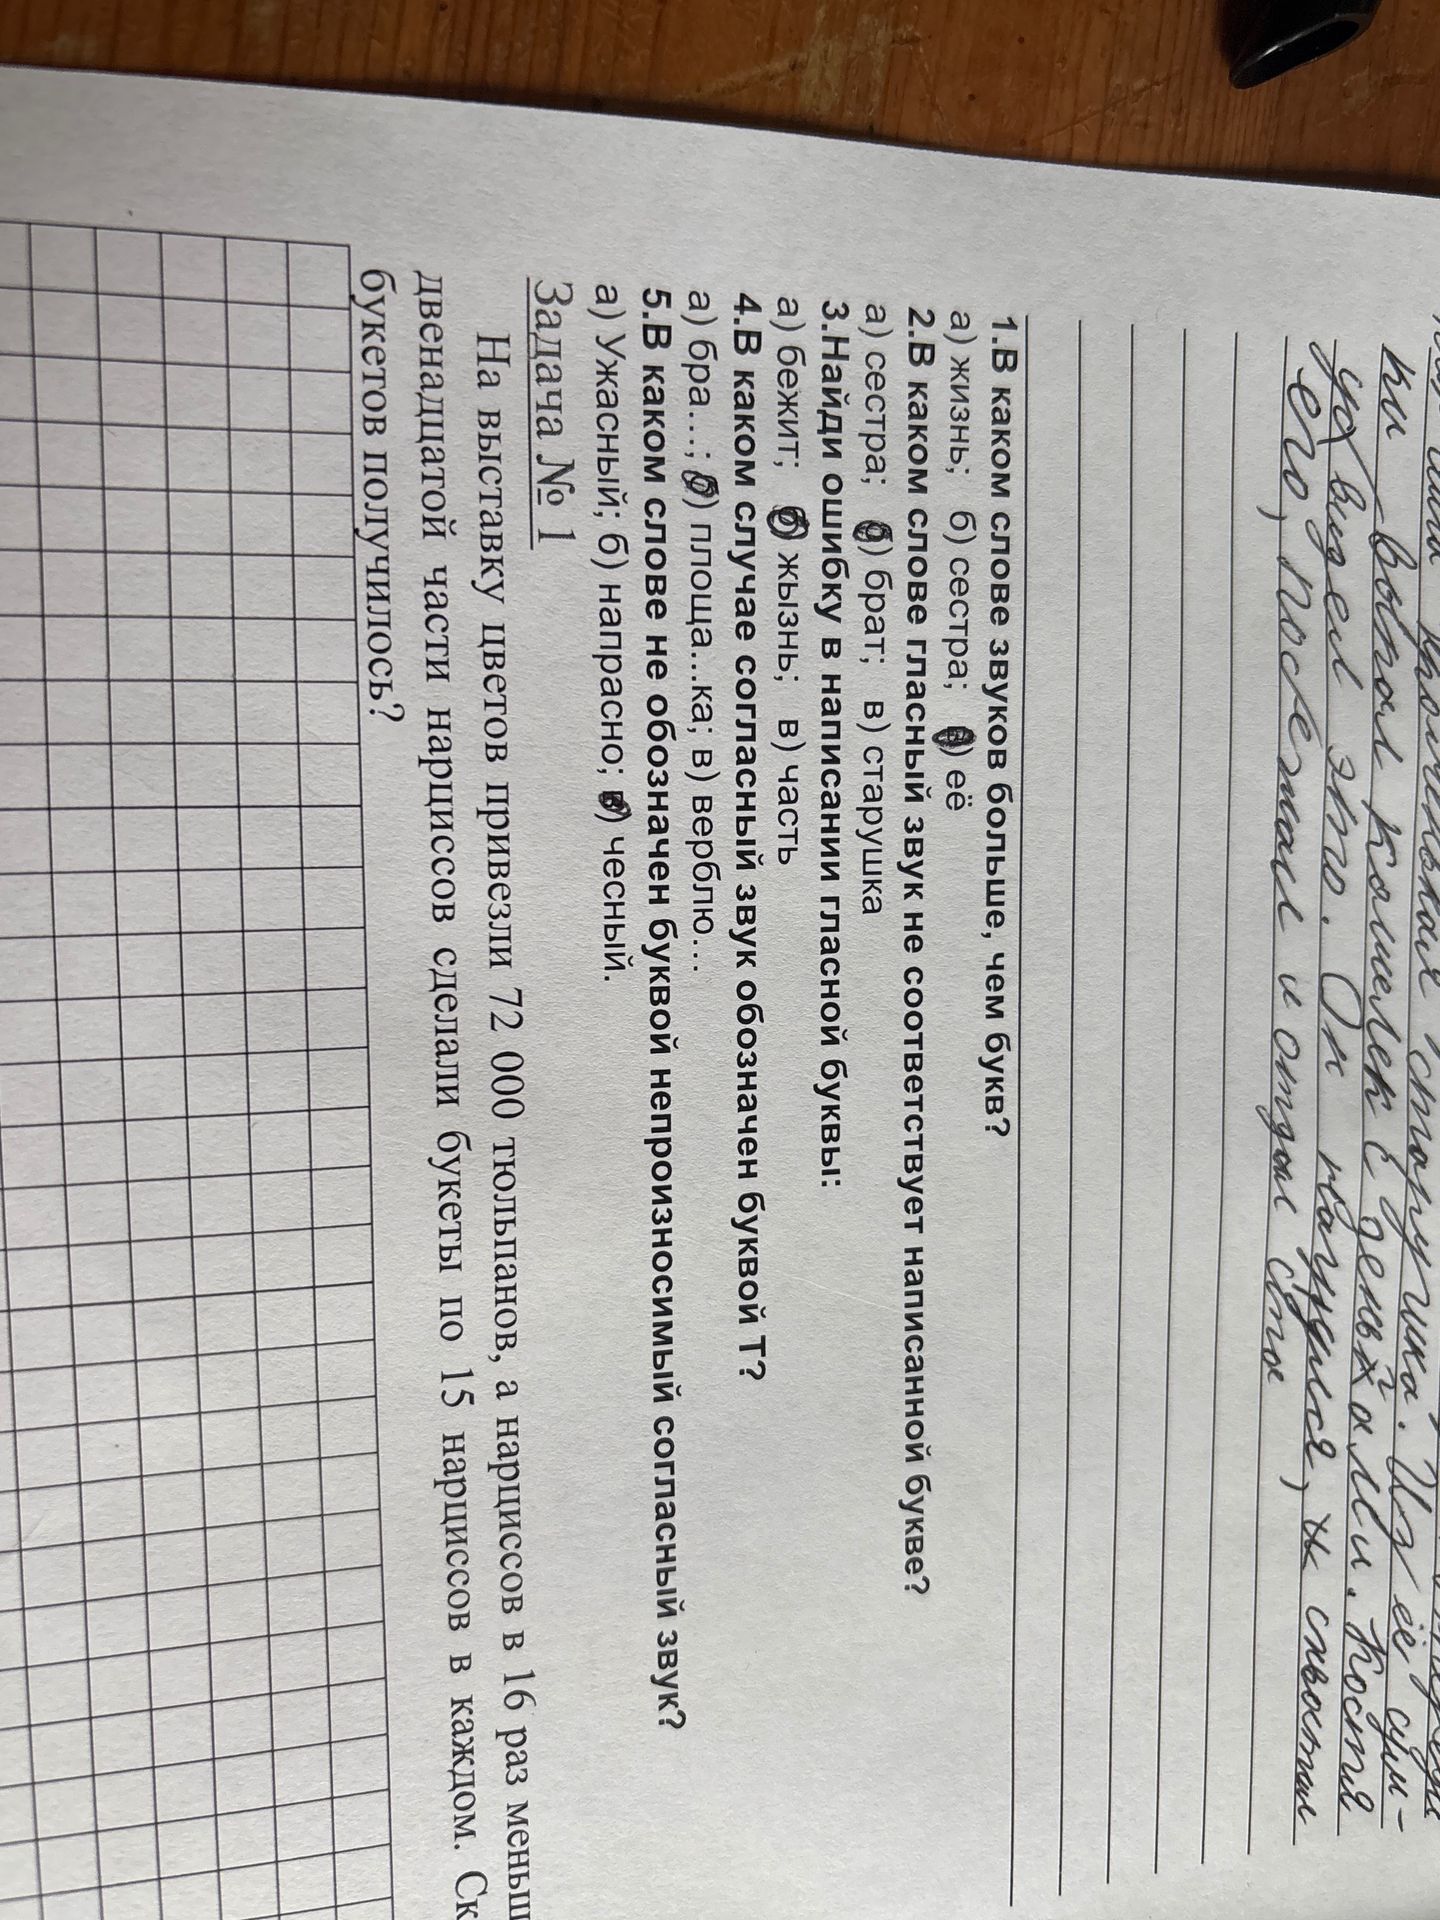 маленькая старушка. Из её сум-
ки выпал кошелёк с деньгами. Костя
увидел это. Он нагнулся, и схватил
его, послежал и отдал ста
1.В каком слове звуков больше, чем букв?
а) жизнь; б) сестра; в) её
2.В каком слове гласный звук не соответствует написанной букве?
а) сестра; б) брат; в) старушка
3.Найди ошибку в написании гласной буквы:
а) бежит; б) жызнь; в) часть
4.В каком случае согласный звук обозначен буквой Т?
а) бра…; б) площа...ка; в) верблю…
5.В каком слове не обозначен буквой непроизносимый согласный звук?
а) Ужасный; б) напрасно; в) чесный.
Задача № 1
На выставку цветов привезли 72 000 тюльпанов, а нарциссов в 16 раз меньш
двенадцатой части нарциссов сделали букеты по 15 нарциссов в каждом. Ск
букетов получилось?